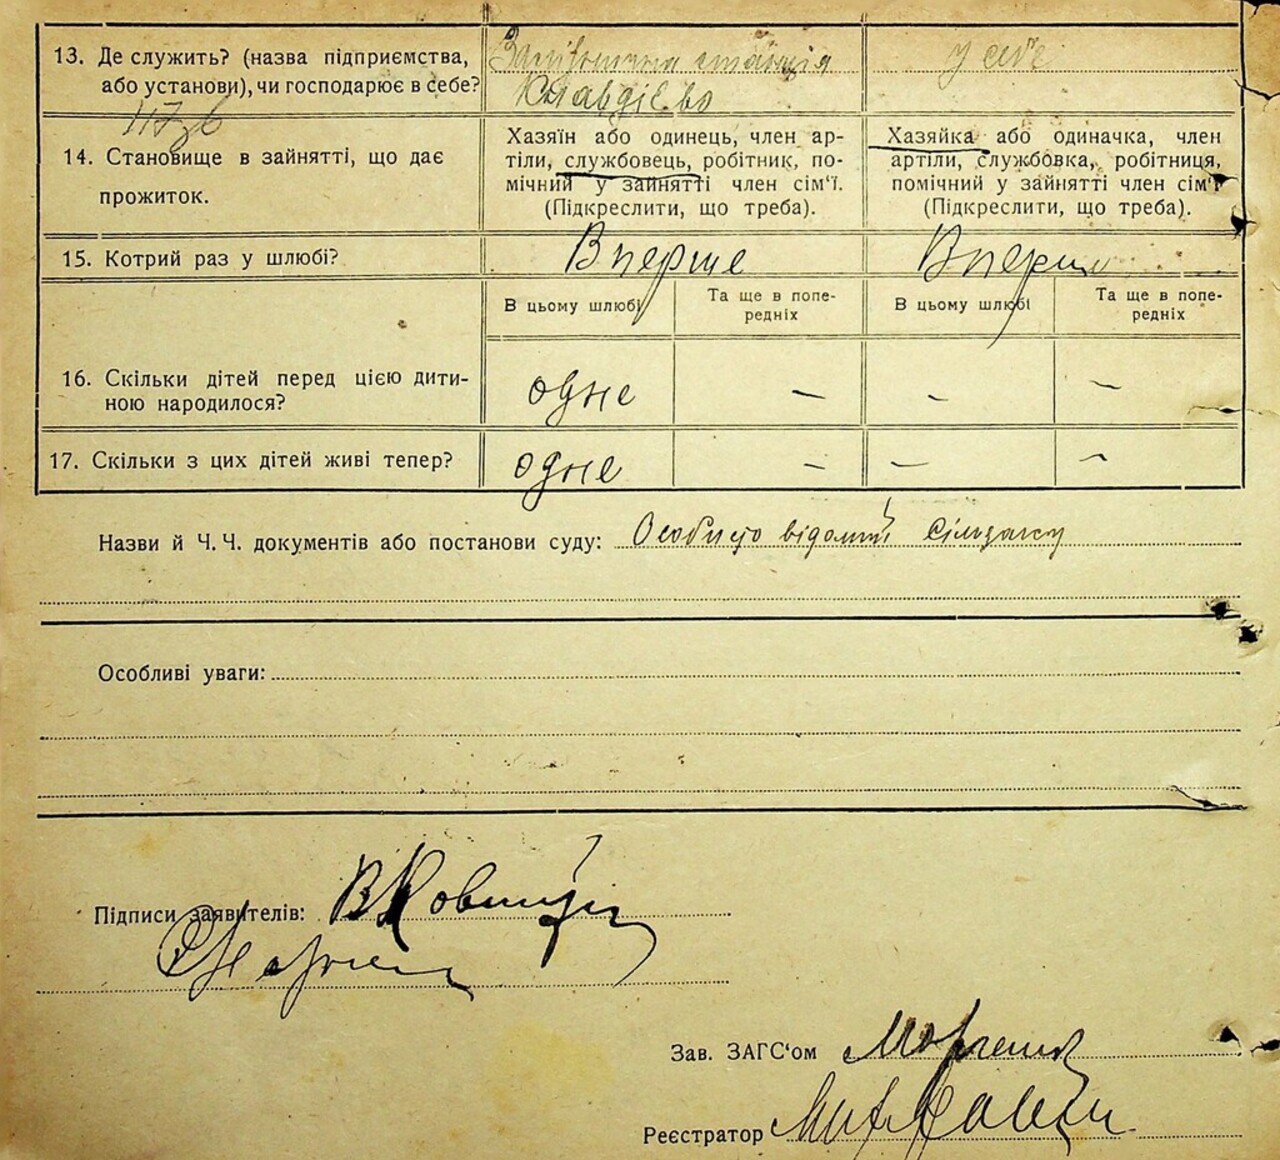 13. Де служить? (назва підприємства,
або установи), чи господарює в себе?
станція
Клавдієво
у себе
14. Становище в зайнятті, що дає
прожиток.
Хазяїн або одинець, член ар-
тілі, службовець, робітник, по-
мічний у зайнятті член сім'ї.
(Підкреслити, що треба).
Хазяйка або одиначка, член
артілі, службовка, робітниця,
помічний у зайнятті член сім'ї
(Підкреслити, що треба).
15. Котрий раз у шлюбі?
Вперше
Вперше
В цьому шлюбі
Та ще в попе-
редніх
В цьому шлюбі
Та ще в попе-
редніх
16. Скільки дітей перед цією дити-
ною народилося?
одне
–
–
–
17. Скільки з цих дітей живі тепер?
одне
–
–
–
Назви й Ч. Ч. документів або постанови суду: Особисто відомий
Особливі уваги:
Підписи заявителів:
Зав. ЗАГС‘ом
Реєстратор